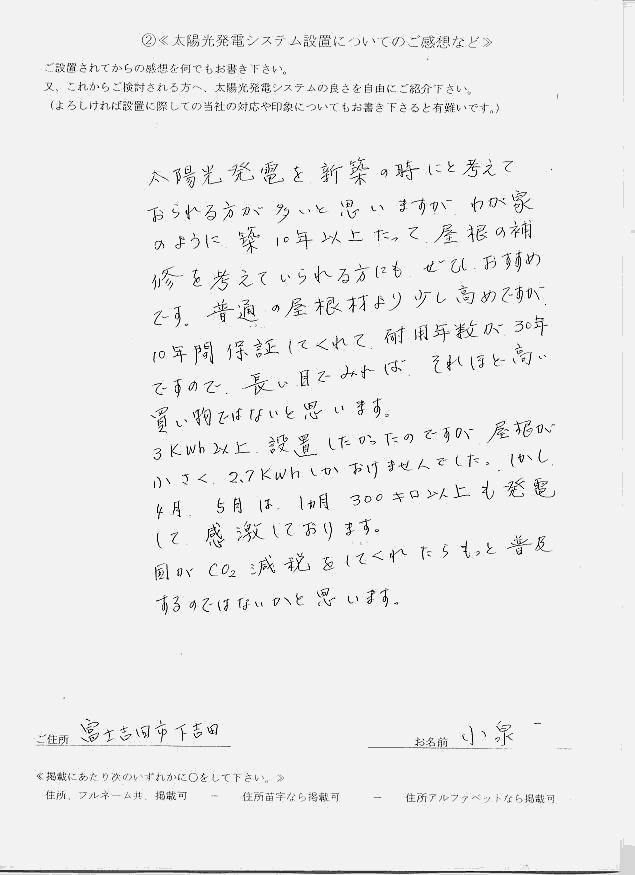 ②≪太陽光発電システム設置についてのご感想など≫
ご設置されてからの感想を何でもお書き下さい。
又、これからご検討される方へ、太陽光発電システムの良さを自由にご紹介下さい。
（よろしければ設置に際しての当社の対応や印象についてもお書き下さると有難いです。）
太陽光発電を 新築の時にと考えて
おられる方が 多いと思いますが わが家
のように 築10年以上たって、屋根の補
修を考えていられる方にも ぜひ おすすめ
です。普通の屋根材より少し高めですが
10年間 保証してくれて、耐用年数が 30年
ですので、長い目でみれば、それほど高い
買い物ではないと思います。
3Kwh以上 設置したかったのですが 屋根が
小さく、2.7Kwhしかおけませんでした。しかし
4月、5月は、1ヵ月 300キロ以上も発電
して、感激しております。
国がCO2減税をしてくれたらもっと普及
するのではないかと思います。
ご住所 富士吉田市下吉田
お名前 小泉
≪掲載にあたり次のいずれかに○をして下さい。≫
住所、フルネーム共、掲載可 － 住所苗字なら掲載可 － 住所アルファベットなら掲載可